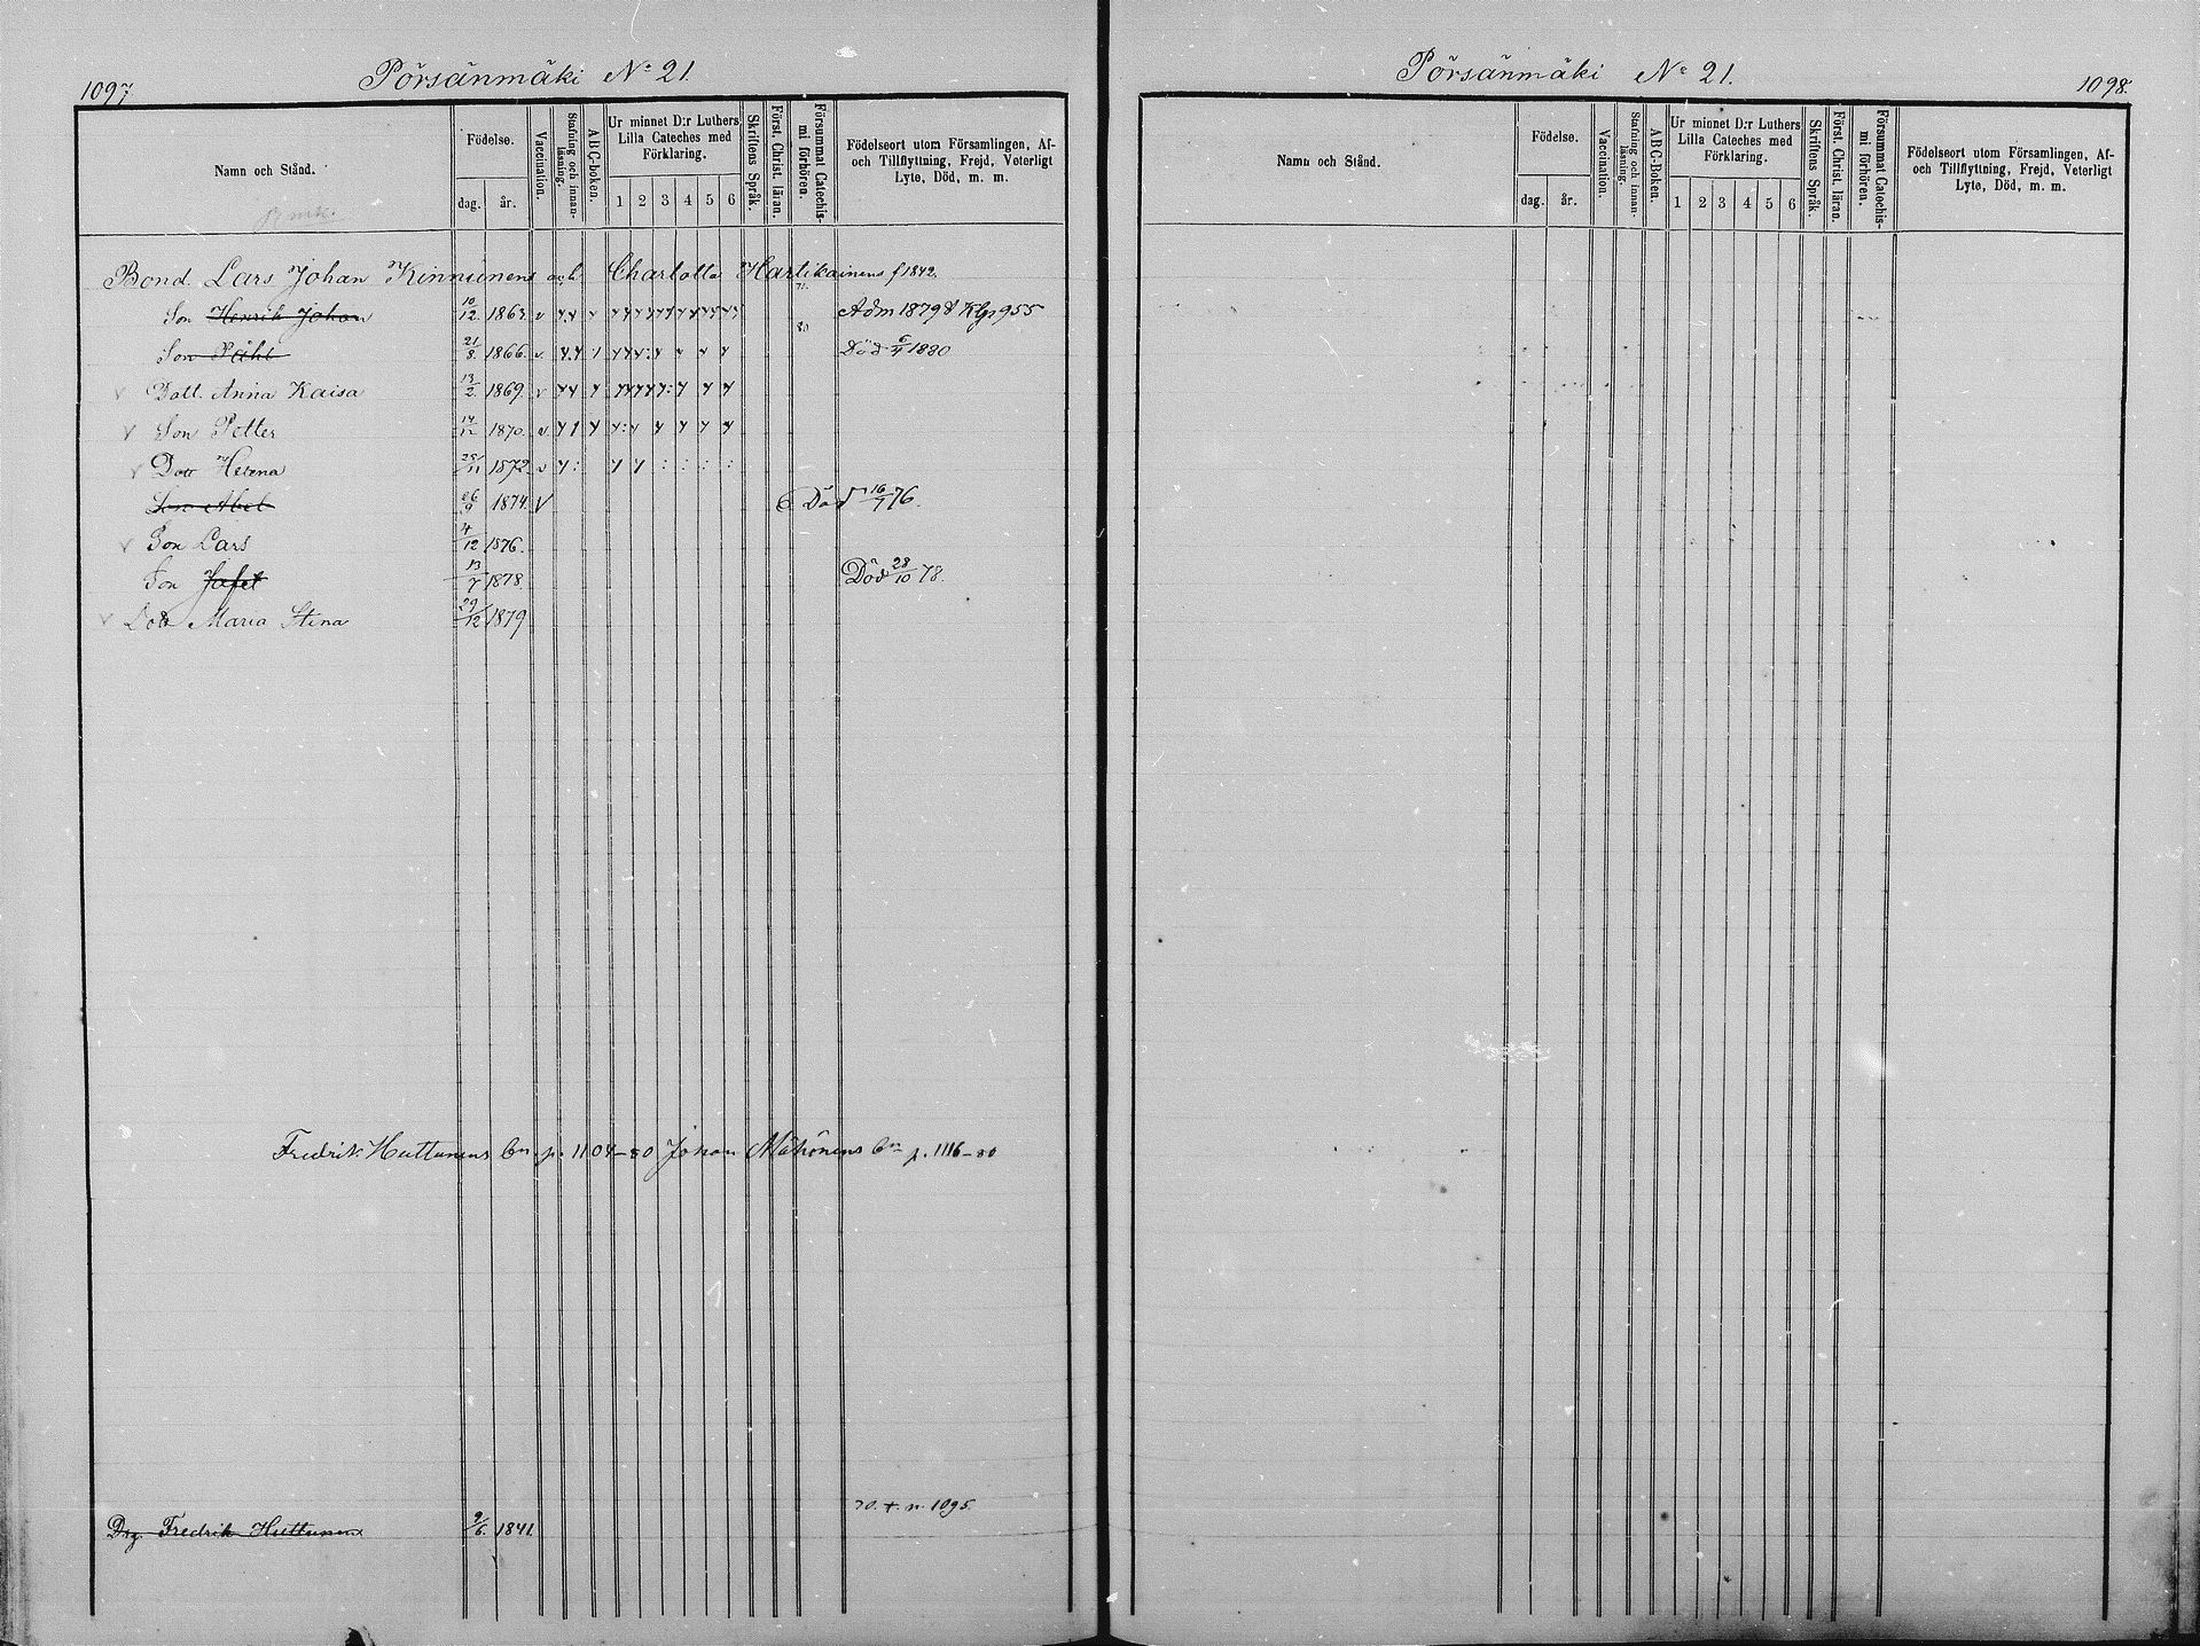 1097
Pörsänmäki No 21.
Namn och Stånd.
Födelse.
dag.
år.
Vaccination.
Stafning och innan-läsning.
ABC-boken.
Ur minnet D:r Luthers Lilla Cateches med Förklaring.
1 2 3 4 5 6
Skriftens Språk.
Först. Christ. läran.
Försummat Catechis-mi förhören.
Födelseort utom Församlingen, Af- och Tillflyttning, Frejd, Veterligt Lyte, Död, m. m.
Bond. Lars Johan Kinnunens och Charlotta Hartikainens f 1842.
Son Henrik Johan 10/12. 1863. Adm 1879 Klgr 955
Son 21/8. 1866. Död 6/4 1880
Dott. Anna Kaisa 13/2. 1869.
Son Petter 14/12 1870.
Dott Helena 25/11 1872
Son Abel 26/9 1874. Död 16/7 76.
Son Lars 4/12 1876.
Son Jafet 13/7 1878. Död 28/10 78.
Dott Maria Stina 29/12 1879
Fredrik Huttunens bn p. 1104-80 Johan Mähönens bn p. 1116-80
70. t. n. 1095.
Drg. Fredrik Huttunen 9/6. 1841.
Pörsänmäki No 21.
1098.
Namn och Stånd.
Födelse.
dag.
år.
Vaccination.
Stafning och innan-läsning.
ABC-Boken.
Ur minnet D:r Luthers Lilla Cateches med Förklaring.
1 2 3 4 5 6
Skriftens Språk.
Först. Christ. läran.
Försummat Catechis-mi förhören.
Födelseort utom Församlingen, Af- och Tillflyttning, Frejd, Veterligt Lyte, Död, m. m.